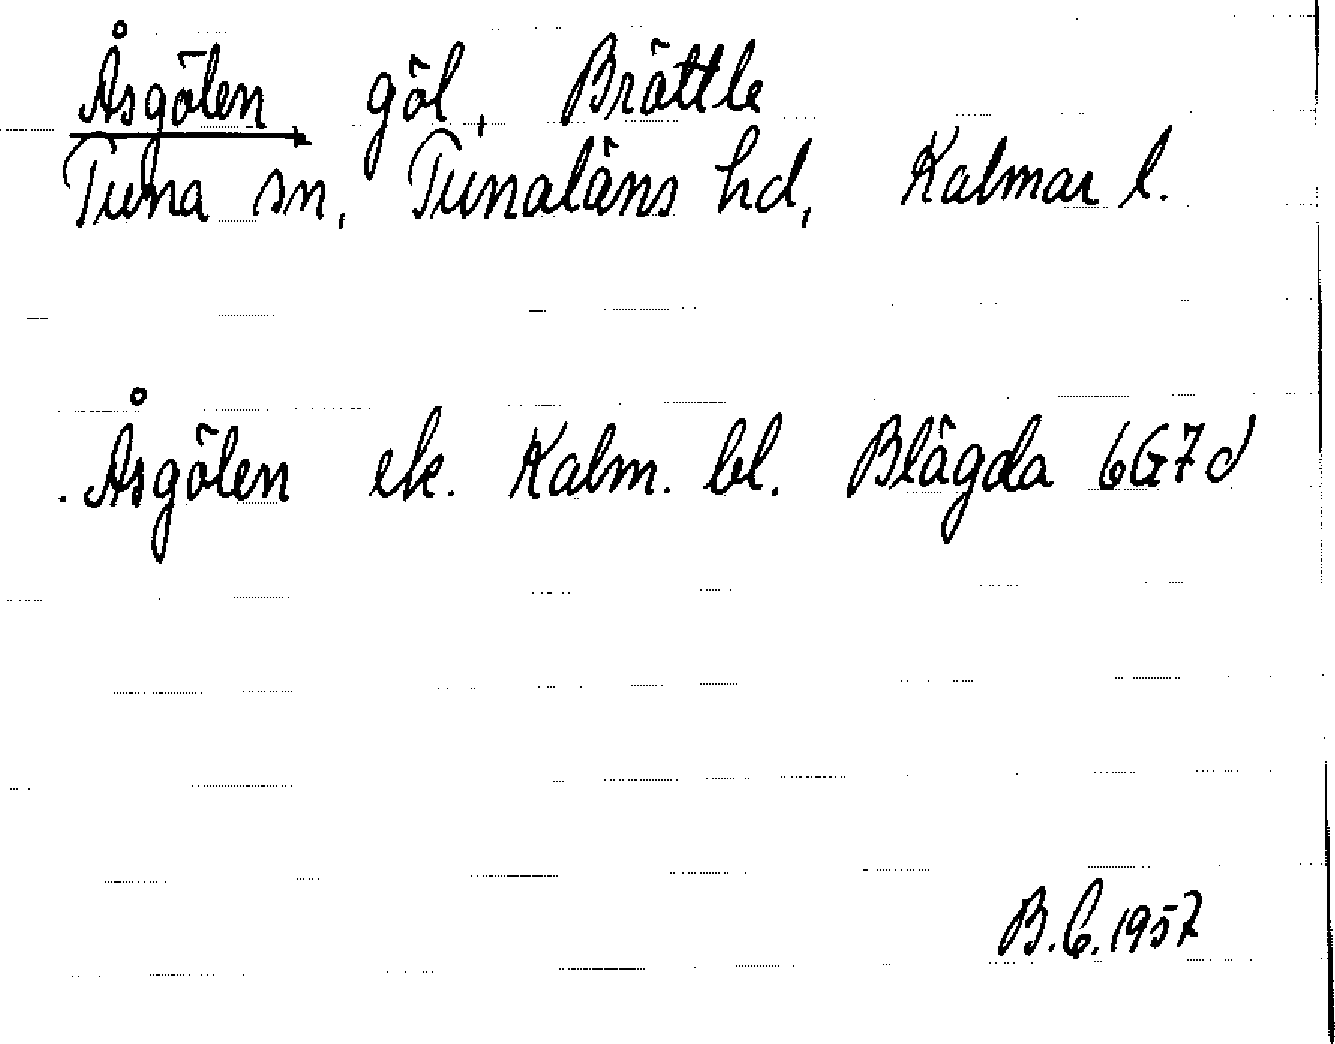 Åsgölen göl, Brättle
Tuna sn, Tunaläns hd, Kalmar l.
Åsgölen ek. Kalm. bl. Blägda 6G7d
B.C. 1957